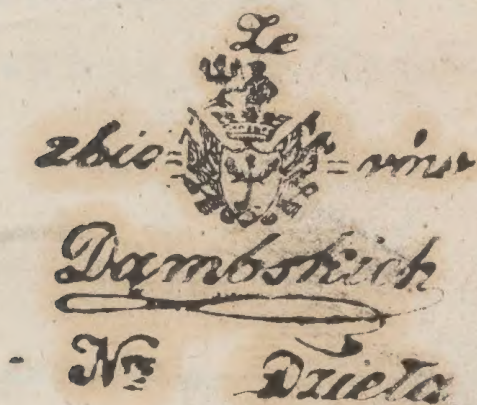 Ze
zbio= =rów
Dambskich
Nr Dzieła